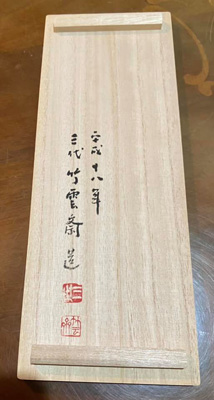 平成十八年
三代 竹雲斎 造